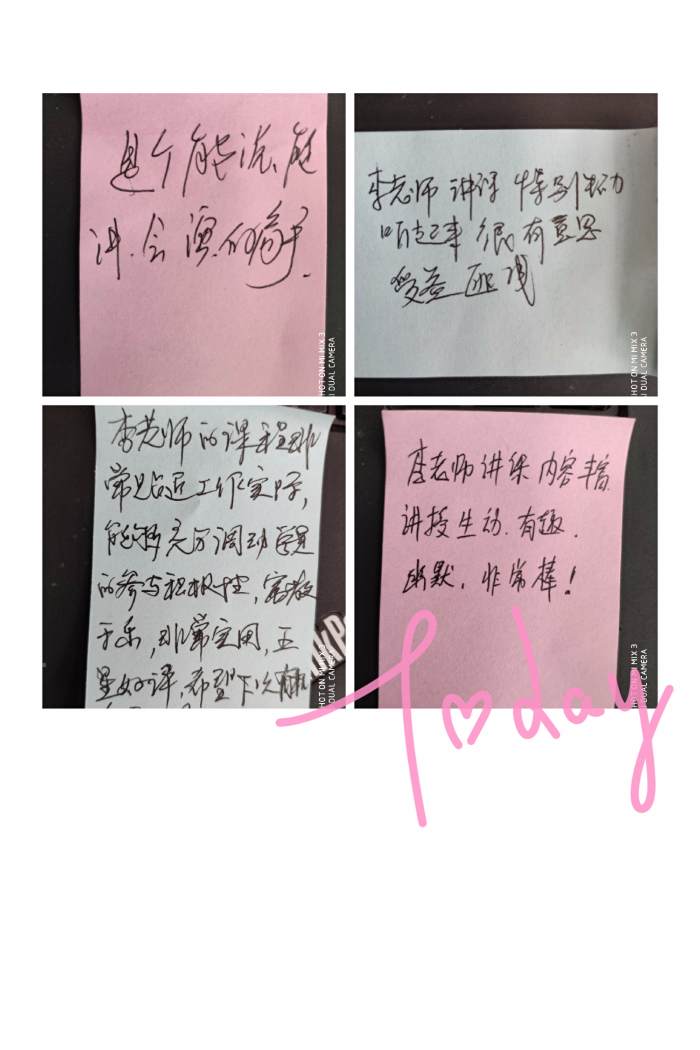 是个能说、能
讲、会演的高手.
李老师讲课特别给力
听起来很有意思
受益匪浅
SHOT ON MI MIX 3
AI DUAL CAMERA
李老师的课程非
常贴近工作实际,
能够充分调动学员
的参与积极性,寓教
于乐,非常实用,五
星好评,希望下次
SHOT ON MI MIX 3
AI DUAL CAMERA
李老师讲课内容丰富.
讲授生动.有趣.
幽默.非常棒!
SHOT ON MI MIX 3
AI DUAL CAMERA
Today